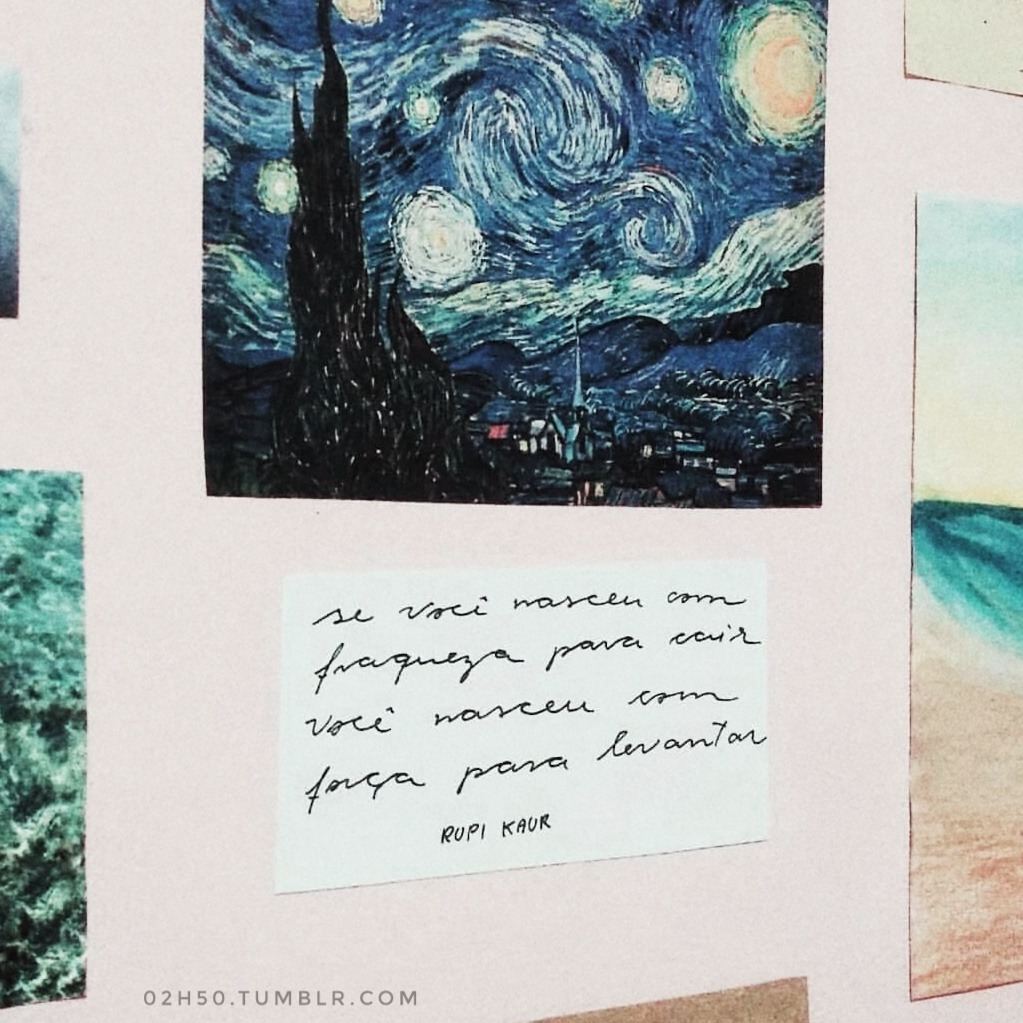 se você nasceu com
fraqueza para cair
você nasceu com
força para levantar
RUPI KAUR
02H50.TUMBLR.COM